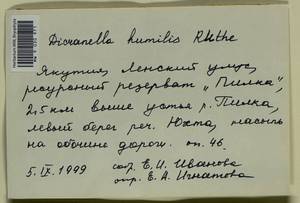 Dicranella humilis Ruthe
Якутия, Ленский улус,
ресурсный резерват "Пилка",
2,5 км выше устья р. Пилка,
левый берег реч. Юхта, насыпь
на обочине дороги. оп. 46.
5.IX.1999 собр. Е.И. Иванова
опр. Е.А. Игнатова